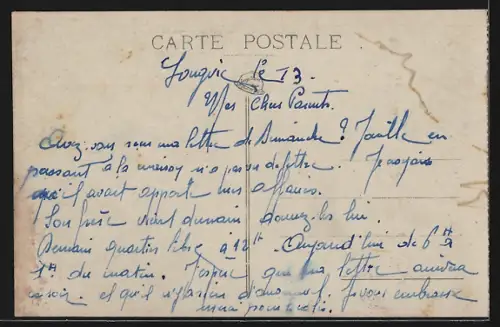 CARTE POSTALE
Longvic le 13.
Mes Chers Parents.
Avez vous reçu ma lettre de Dimanche? en
passant à la maison n'a pas vu de lettre. Je croyais
qu'il avait apporté mes affaires.
Son frère vient demain donnez les lui.
Demain quartier libre à 12H. Aujourd'hui de 6H à
1H du matin. J'espère que ma lettre arrivera
ce soir. et qu'il n'y a rien d'anormal. Je vous embrasse